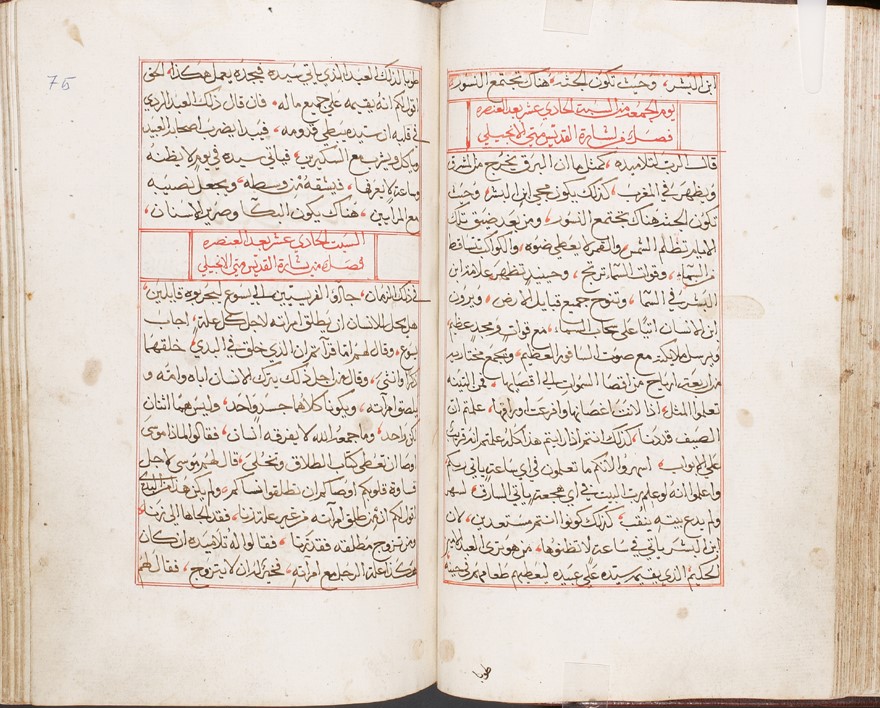 ابن البشر، وحيث تكون الجثه هناك تجتمع النسور
يوم الجمعه من السبت الحادي عشر بعد العنصره
فصل من بشارة القديس متي الانجيلي
قال الرب لتلاميذه، كمثل ما ان البرق يخرج من المشرق
ويظهر في المغرب، كذلك يكون مجي ابن البشر، وحيث
تكون الجثه هناك تجتمع النسور، ومن بعد ضيق تلك
الايام تظلم الشمس والقمر لا يعطي ضوه، والكواكب تتساقط
من السماء، وقوات السما ترتج، وحينيذ تظهر علامة ابن
البشر في السما، وتنوح جميع قبايل الارض، ويرون
ابن الانسان اتيا علي سحاب السماء، مع قوات ومجد عظيم
ويرسل ملايكته مع صوت السافور العظيم، ويجمع مختاريه
من اربعة ارياح من اقصا السموات الي اقصاها، فمن التينه
تعلموا المثل، اذا لانت اغصانها وافرعت اوراقها، علمتم ان
الصيف قد دنا، كذلك انتم اذا رايتم هذا كله علمتم انه قريب
علي الابواب، اسهروا لانكم ما تعلمون في اي ساعة ياتي ربكم
واعلموا انه لو علم رب البيت في اي هجعة ياتي السارق، لسهر
ولم يدع بيته ينقب، كذلك كونوا انتم مستعدين، لان
ابن البشر ياتي في ساعة لا تظنوها، من هو تري العبد الامين
الحكيم الذي يقيمه سيده علي عبيده ليعطيهم طعامهم في حينه
طوبا
75
طوبا لذلك العبد الذي ياتي سيده فيجده يعمل هكذا، الحق
اقول لكم انه يقيمه علي جميع ماله، فان قال ذلك العبد الردي
في قلبه ان سيده يبطي قدومه، فيبدا يضرب اصحابه العبيد
وياكل ويشرب مع السكيرين، فياتي سيده في يوم لا يظنه
وساعة لا يعرفها، فيشقه من وسطه، ويجعل نصيبه
مع المرايين، هناك يكون البكا وصرير الاسنان،
السبت الحادي عشر بعد العنصره
فصل من بشارة القديس متي الانجيلي
في ذلك الزمان، جا الفريسيين الي يسوع ليجربوه قايلين
هل يحل للانسان ان يطلق امراته لاجل كل علة، اجاب
يسوع، وقال لهم اما قراتم ان الذي خلق في البدي، خلقهما
ذكرا وانثي، وقال من اجل ذلك يترك الانسان اباه وامه و
يلصق بامراته، ويكونا كلاهما جسد واحد، وليس هما اثنان
لكن واحد، وما جمعه الله لا يفرقه انسان، فقالوا لماذا موسي
اوصا ان تعطي كتاب الطلاق وتخلي، قال لهم موسي لاجل
قساوة قلوبكم اوصاكم ان تطلقوا نساكم، ولم يكن هذا من البدي
اقول لكم ان من طلق امراته من غير علة زنا، فقد الجاها الي زنا،
ومن تزوج مطلقه فقد زنا، فقالوا له تلاميذه ان كان
هكذا علة الرجل مع امراته، فخير له ان لا يتزوج، فقال لهم